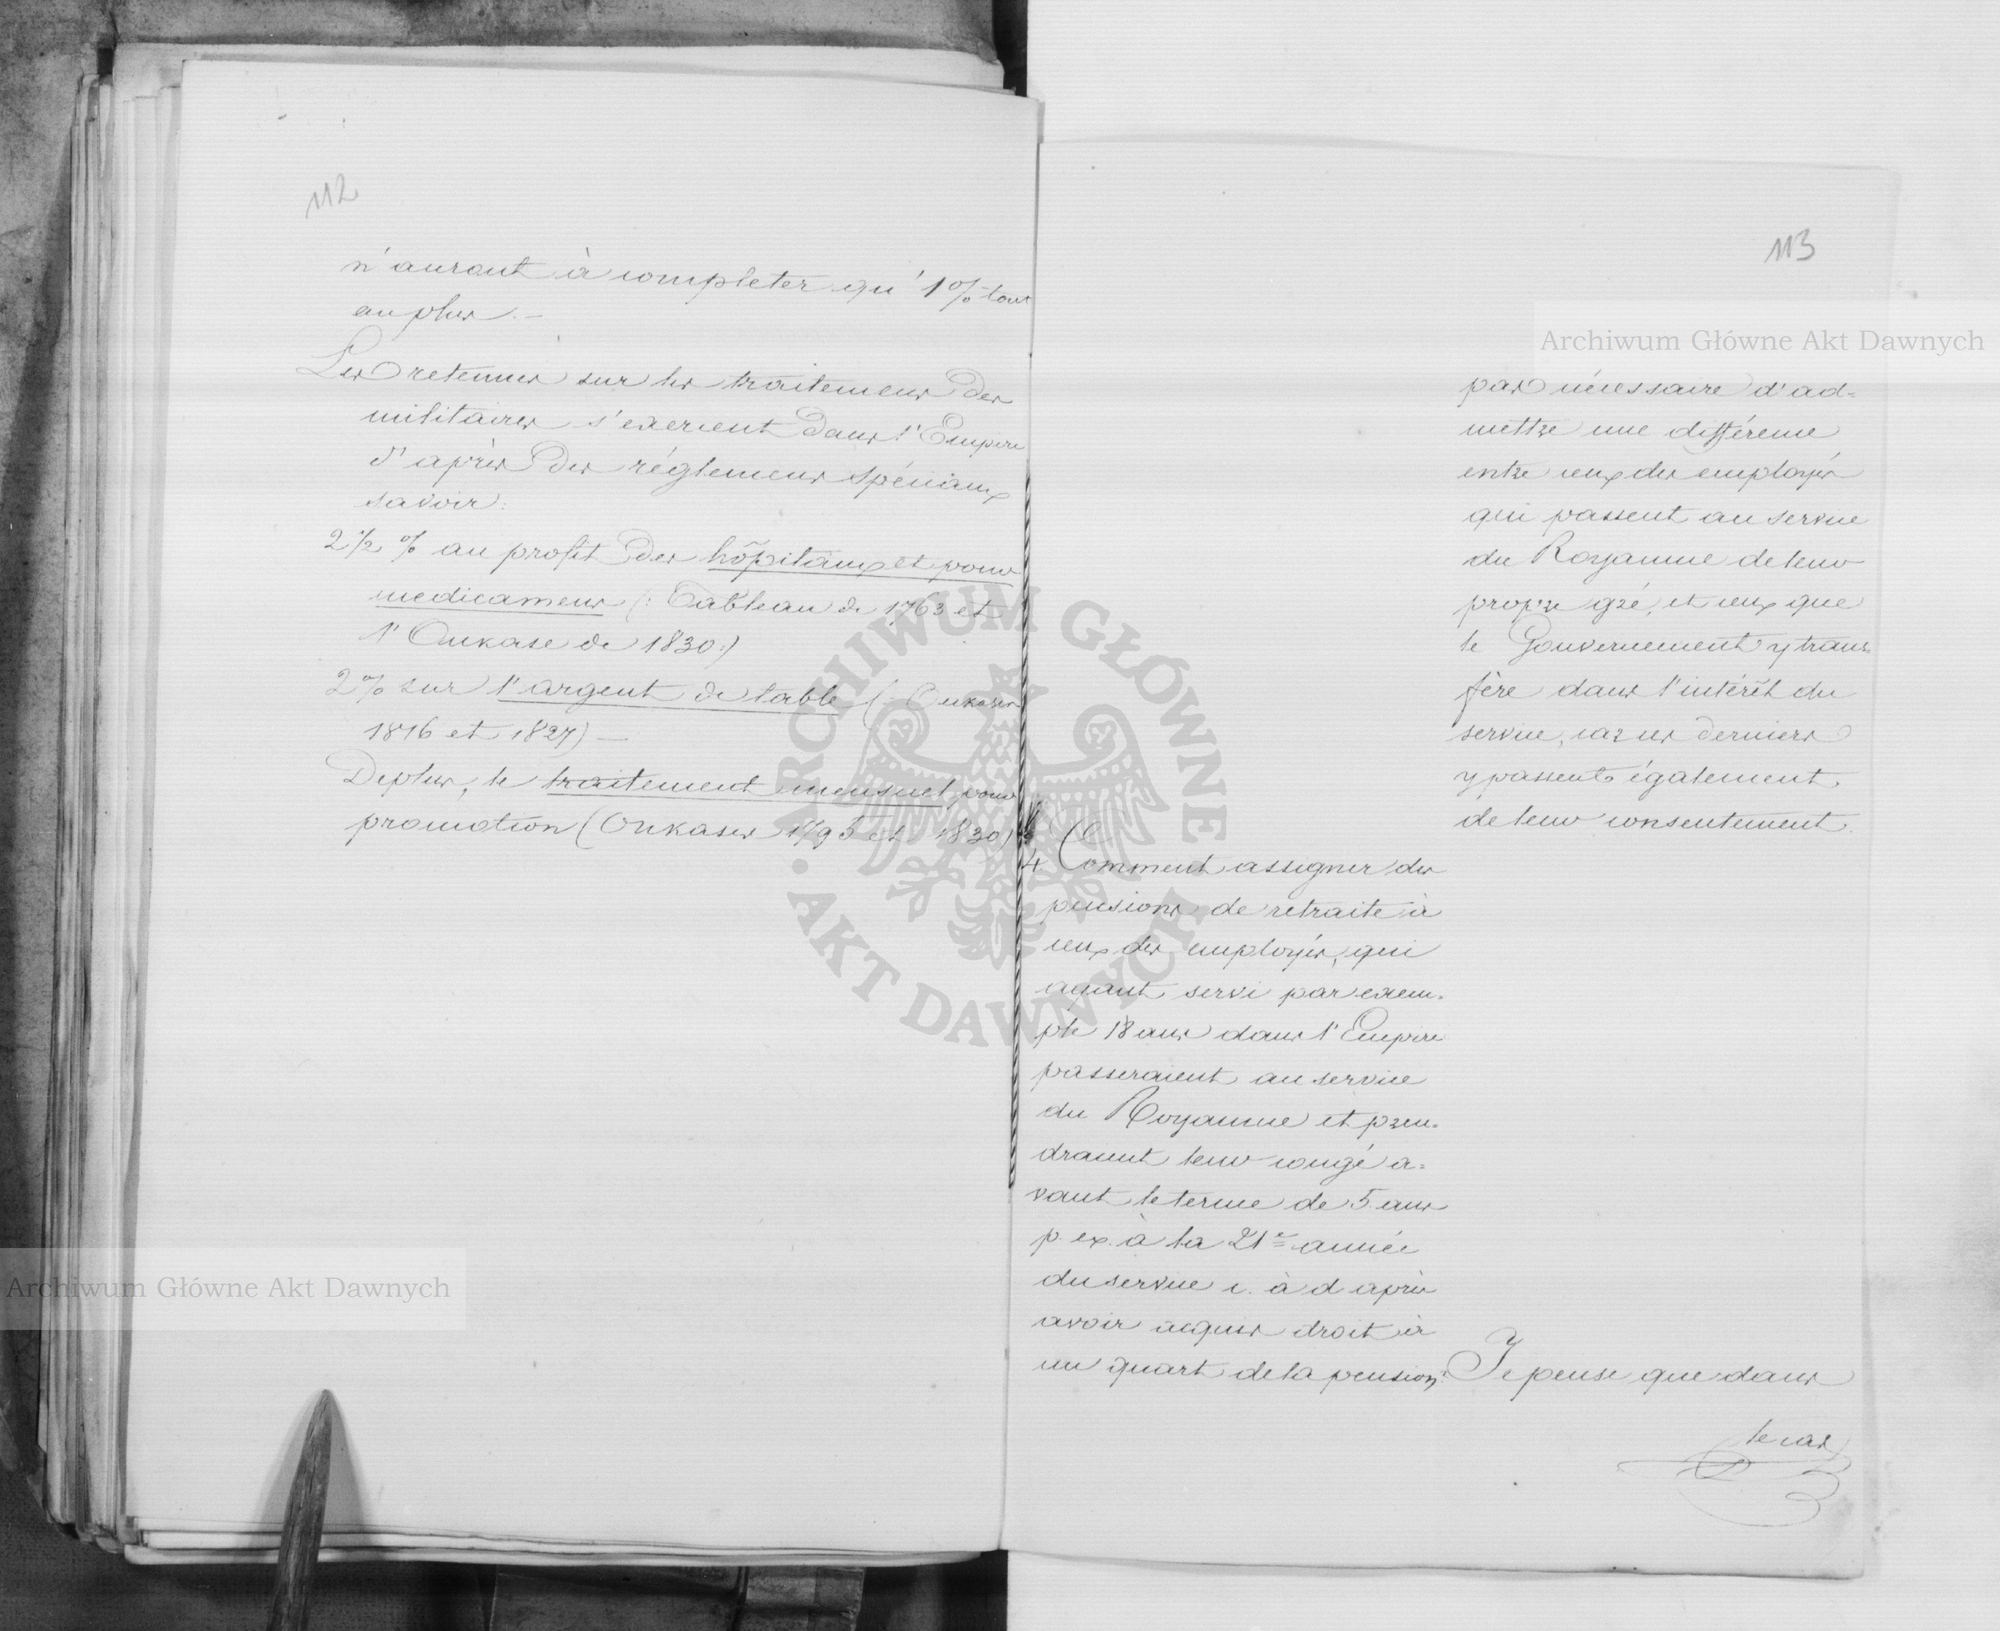 112
n'auront à completer qu'1% tout
au plus.—
Les retenues sur les traitemens des
militaires s'exercent dans l'Empire
d'après des réglemens spéciaux
savoir:
2½ % au profit des hôpitaux et pour
medicamens (: Tableau de 1763 et
l'Oukase de 1830:)
2% sur l'argent de table (: Oukases
1816 et 1827) —
De plus, le traitement mensuel pour
promotion (Oukases 1795 et 1830)
113
pas nécessaire d'ad=
mettre une différence
entre ceux des employés
qui passent au service
du Royaume de leur
propre gré, et ceux que
le Gouvernement y trans=
fère dans l'intérêt du
service, car ces derniers
y passent également
de leur consentement.
4. Comment assigner des
pensions de retraite à
ceux des employés, qui
ayant servi par exem=
ple 18 ans dans l'Empire
passeraient au service
du Royaume et pren=
draient leur congé a=
vant le terme de 5 ans
p. ex. à la 21e année
du service c. à d après
avoir acquis droit à
un quart de la pension?
Je pense que dans
le cas
Archiwum Główne Akt Dawnych
Archiwum Główne Akt Dawnych
ARCHIWUM GŁÓWNE AKT DAWNYCH